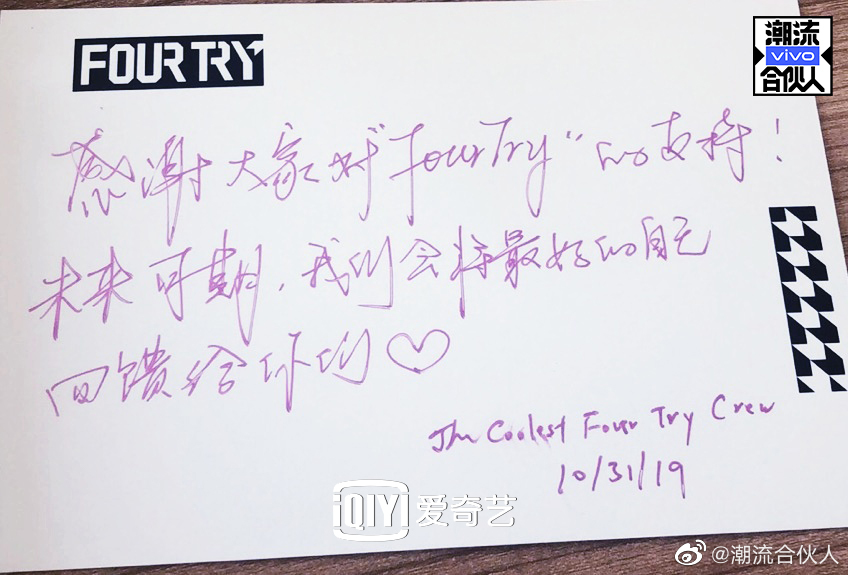 FOURTRY
潮流
vivo
合伙人
感谢大家对“FourTry”的支持！
未来可期，我们会将最好的自己
回馈给你们♡
The Coolest Four Try Crew
10/31/19
iQIYI 爱奇艺
@潮流合伙人